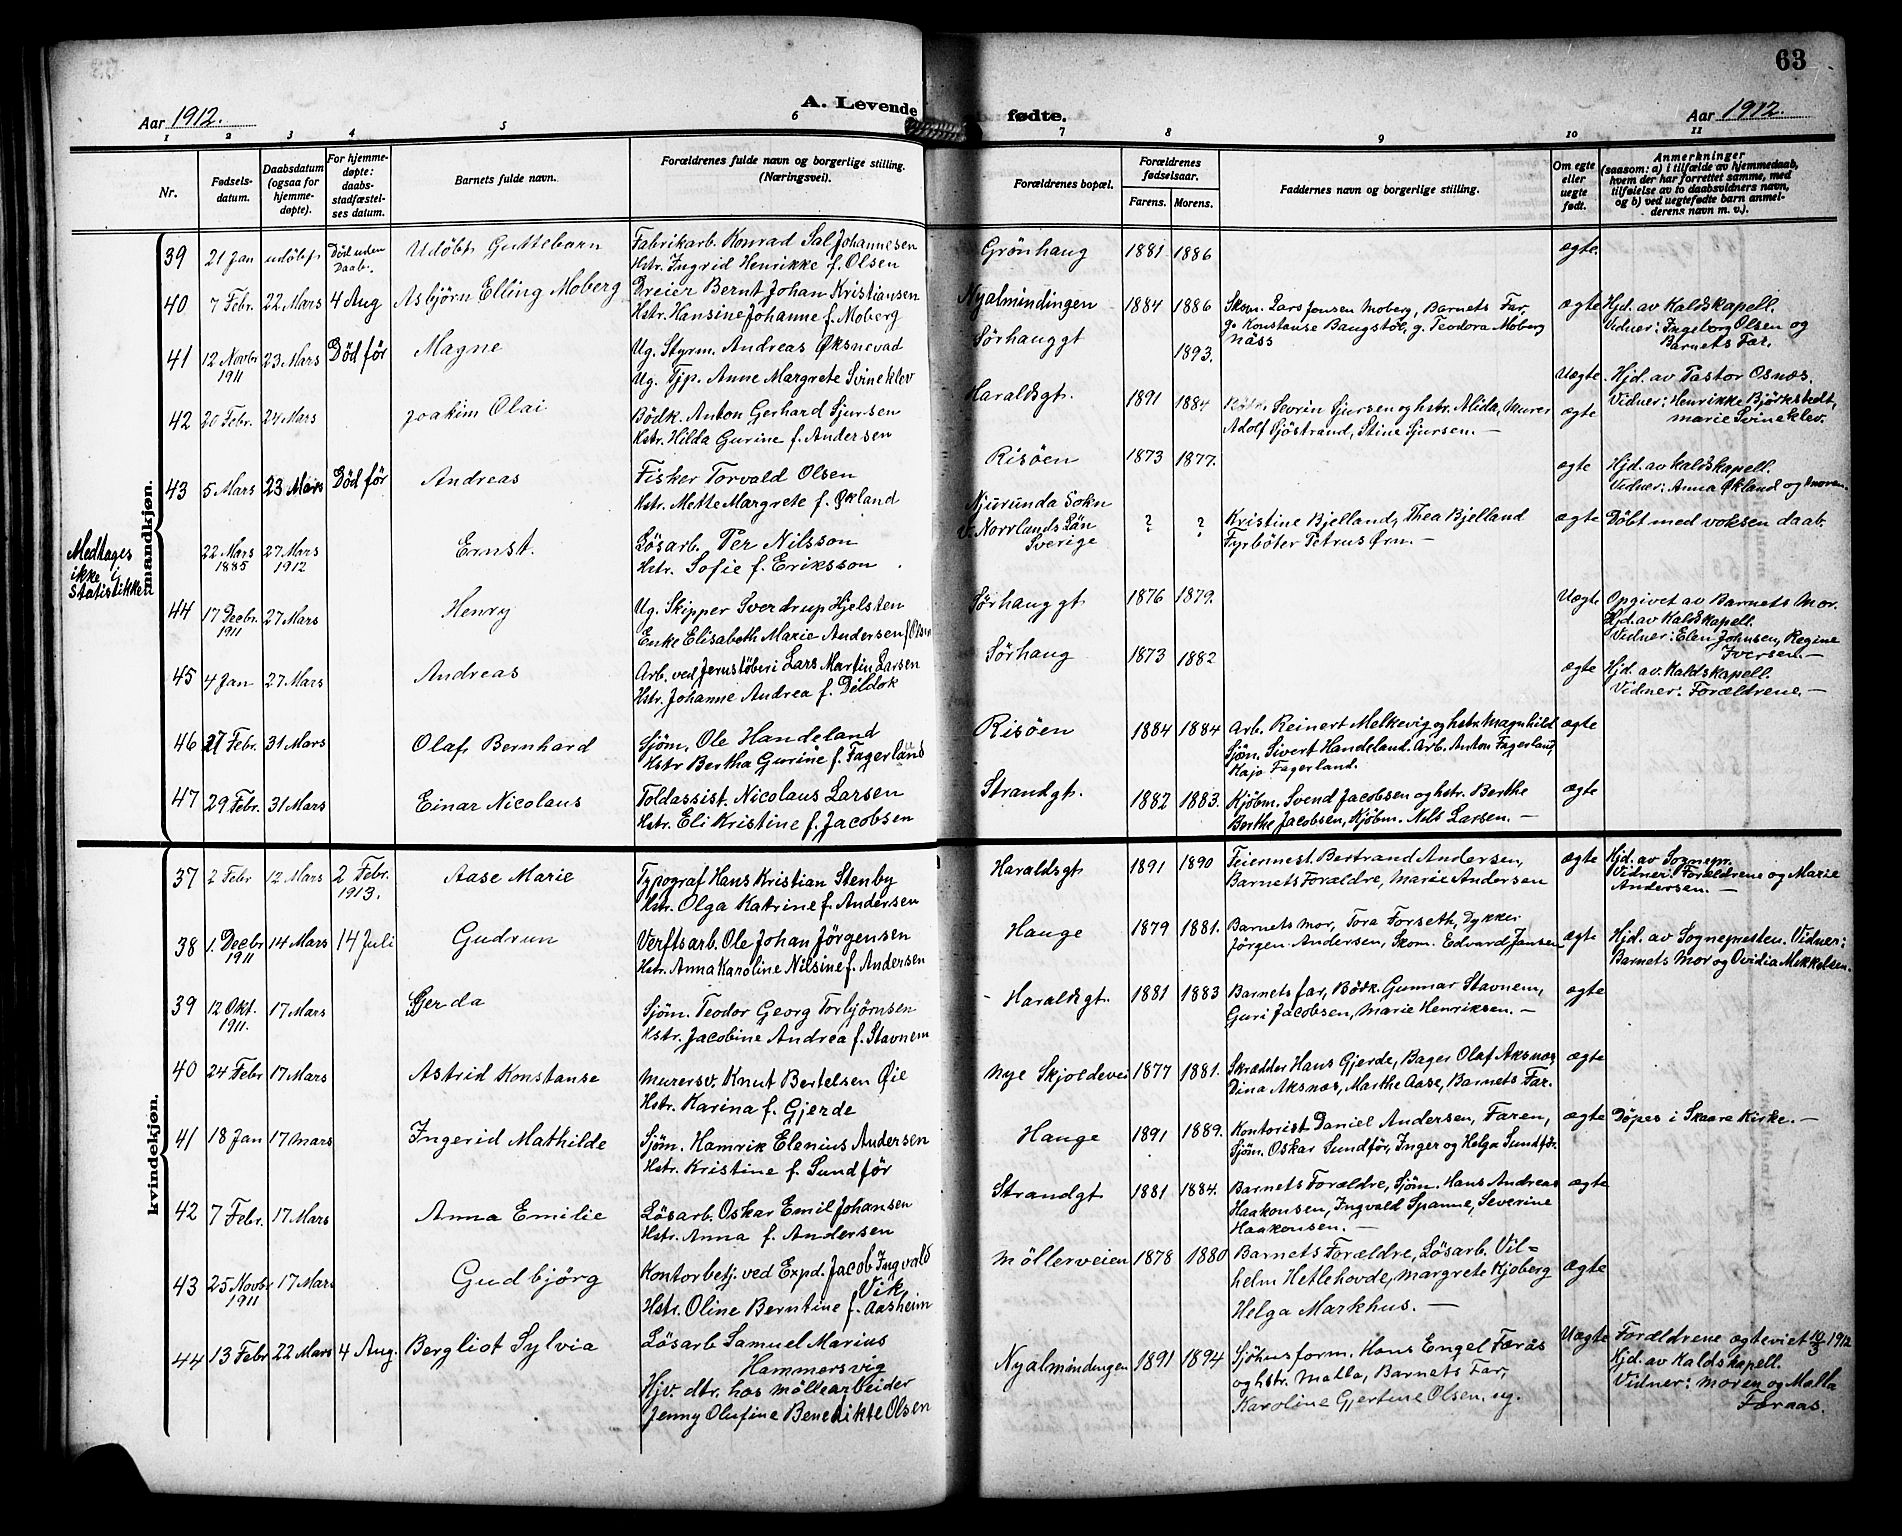 63
Aar 1912.
A. Levende fødte.
Aar 1912.
1 2 3 4 5 6 7 8 9 10 11
Nr.
Fødsels-
datum.
Daabsdatum
(ogsaa for
hjemme-
døpte).
For hjemme-
døpte:
daabs-
stadfæstel-
ses datum.
Barnets fulde navn.
Forældrenes fulde navn og borgerlige stilling.
(Næringsvei).
Forældrenes bopæl.
Forældrenes
fødselsaar.
Farens. Morens.
Faddernes navn og borgerlige stilling.
Om egte
eller
uegte
født.
Anmerkninger
(saasom: a) i tilfælde av hjemmedaab,
hvem der har forrettet samme, med
tilføielse av to daabsvidners navn,
og b) ved uegtefødte barn anmel-
derens navn m. v.).
mandkjøn.
39 21 Jan udöbt Död uden Daab. Udöbt Guttebarn
Fabrikarb. Konrad Sal. Johannesen
Hstr. Ingrid Henrikke f. Olsen
Grönhaug 1881 1886 ægte.
40 7 Febr. 22 Mars 4 Aug Asbjörn Elling Moberg
Dreier Bernt Johan Kristiansen
Hstr. Hansine Johanne f. Moberg
Nyalmindingen 1884 1886
Skom. Lars Jonsen Moberg, Barnets Far,
g. Konstanse Baugstöl, g. Teodora Moberg
Næss
ægte
Hjd. av Kaldskapell.
Vidner: Ingeborg Olsen og
Barnets Far.
41 12 Novbr 1911 23 Mars Död før Magne
Ug. Styrm. Andreas Øksnevad
Ug. Tjp. Anne Margrete Svineklev
Sörhauggt 1893.
Uægte.
Hjd. av Pastor Osnæs.
Vidner: Henrikke Björkstedt,
Marie Svineklev.
42 20 Febr. 24 Mars Joakim Olai
Bödk. Anton Gerhard Sjursen
Hstr. Hilda Gurine f. Andersen
Haraldsgt. 1891 1884
Sevrin Sjursen og hstr. Alida, Murer
Adolf Sjöstrand, Stine Sjursen. —
ægte
43 5 Mars 23 Mars Död før Andreas
Fisker Torvald Olsen
Hstr. Mette Margrete f. Økland
Risöen 1873 1877.
ægte
Hjd. av Kaldskapell.
Vidner: Anna Økland og Moren.
Medtages
ikke i
Statistikken
22 Mars 1885 27 Mars 1912 Ernst.
Lösarb. Per Nilsson
Hstr. Sofie f. Eriksson
Njurunda Sokn
V. Norrlands Län
Sverige
? ?
Kristine Bjelland, Thea Bjelland
Fyrböter Petrus Ørn. —
ægte Döbt med voksen daab.
44 17 Decbr. 1911 27 Mars Henry
Ug. Skipper Sverdrup Hjelsten
Enke Elisabeth Marie Andersen f. Olsen
Sörhauggt 1876 1879.
Uægte
Opgivet av Barnets Mor.
Hjd. av Kaldskapell.
Vidner: Elen Johnsen, Regine
Iversen. —
45 4 Jan 27 Mars Andreas
Arb. ved Jernstöberi Lars Martin Larsen
Hstr. Johanne Andrea f. Dildok
Sörhaug 1873 1882
ægte
Hjd. av Kaldskapell.
Vidner: Forældrene. —
46 27 Febr. 31 Mars Olaf Bernhard
Sjöm. Ole Handeland
Hstr Bertha Gurine f. Fagerland
Risöen 1884 1884
Arb. Reinert Melkevig og hstr. Magnhild
Sjöm. Sivert Handeland. Arb. Anton Fagerland,
Kaja Fagerland.
ægte
47 29 Febr. 31 Mars Einar Nicolaus
Toldassist. Nicolaus Larsen
Hstr. Eli Kristine f. Jacobsen
Strandgt. 1882 1883.
Kjöbm. Svend Jacobsen og hstr. Berthe
Berthe Jacobsen, Kjöbm. Nils Larsen. —
ægte
kvindekjøn.
37 2 Febr 12 Mars 2 Febr. 1913. Aase Marie
Typograf Hans Kristian Stenby
Hstr. Olga Katrine f. Andersen
Haraldsgt 1891 1890
Feiermest. Bertrand Andersen,
Barnets Forældre, Marie Andersen
ægte
Hjd. av Sognepr.
Vidner: Forældrene og Marie
Andersen. —
38 1. Decbr 1911 14 Mars 14 Juli Gudrun
Verftsarb. Ole Johan Jörgensen
Hstr. Anna Karoline Nilsine f. Andersen
Hauge 1879 1881.
Barnets Mor, Tora Forseth, Dykker
Jörgen Andersen, Skom. Edvard Jansen
ægte
Hjd. av Sognepresten. Vidner:
Barnets Mor og Ovidia Mikkelsen.
39 12 Okt. 1911. 17 Mars Gjerda
Sjöm. Teodor Georg Torbjörnsen
Hstr. Jacobine Andrea f. Stavnem
Haraldsgt. 1881 1883
Barnets far, Bödk. Gunnar Stavnem,
Guri Jacobsen, Marie Henriksen. —
ægte
40 24 Febr 17 Mars Astrid Konstanse
Murersv. Knut Bertelsen Øie
Hstr. Karina f. Gjerde
Nye Skjoldevei 1877 1881.
Skrædder Hans Gjerde, Bager Olaf Aksnæs
Dina Aksnæs, Marthe Aase, Barnets Far.
ægte
41 18 Jan 17 Mars Ingerid Mathilde
Sjöm. Hamrik Elenius Andersen
Hstr. Kristine f. Sundför
Hauge 1891 1889.
Kontorist Daniel Andersen, Faren,
Sjöm. Oskar Sundför, Inger og Helga Sundför.
ægte Döpes i Skaare Kirke. —
42 7 Febr. 17 Mars Anna Emilie
Lösarb. Oskar Emil Johansen
Hstr. Anna f. Andersen
Strandgt 1881 1884.
Barnets Forældre, Sjöm. Hans Andreas
Haakonsen, Ingvald Spanne, Severine
Haakonsen. —
ægte
43 25 Novbr 1911 17 Mars Gudbjörg
Kontorbetj. ved Exp. Jacob Ingvald
Vik,
Hstr. Oline Berntine f. Aasheim
Möllerveien 1878 1880
Barnets Forældre, Lösarb. Vil-
helm Hetlehovde, Margrete Kjoberg
Helga Markhus. —
ægte
44 13 Febr 22 Mars 4 Aug. Bergliot Sylvia
Lösarb Samuel Marius
Hammersvig
Hjv. dtr. hos möllearbeider
Jenny Olufine Benedikte Olsen
Nyalmindingen 1891 1894
Sjöhusform. Hans Engel Færås
og hstr. Malla, Barnets Far,
Karoline Gjertine Olsen, ug.
Uægte
Forældrene ægteviet 10/3 1912
Hjd. av Kaldskapell.
Vidner: Moren og Malla
Færaas.